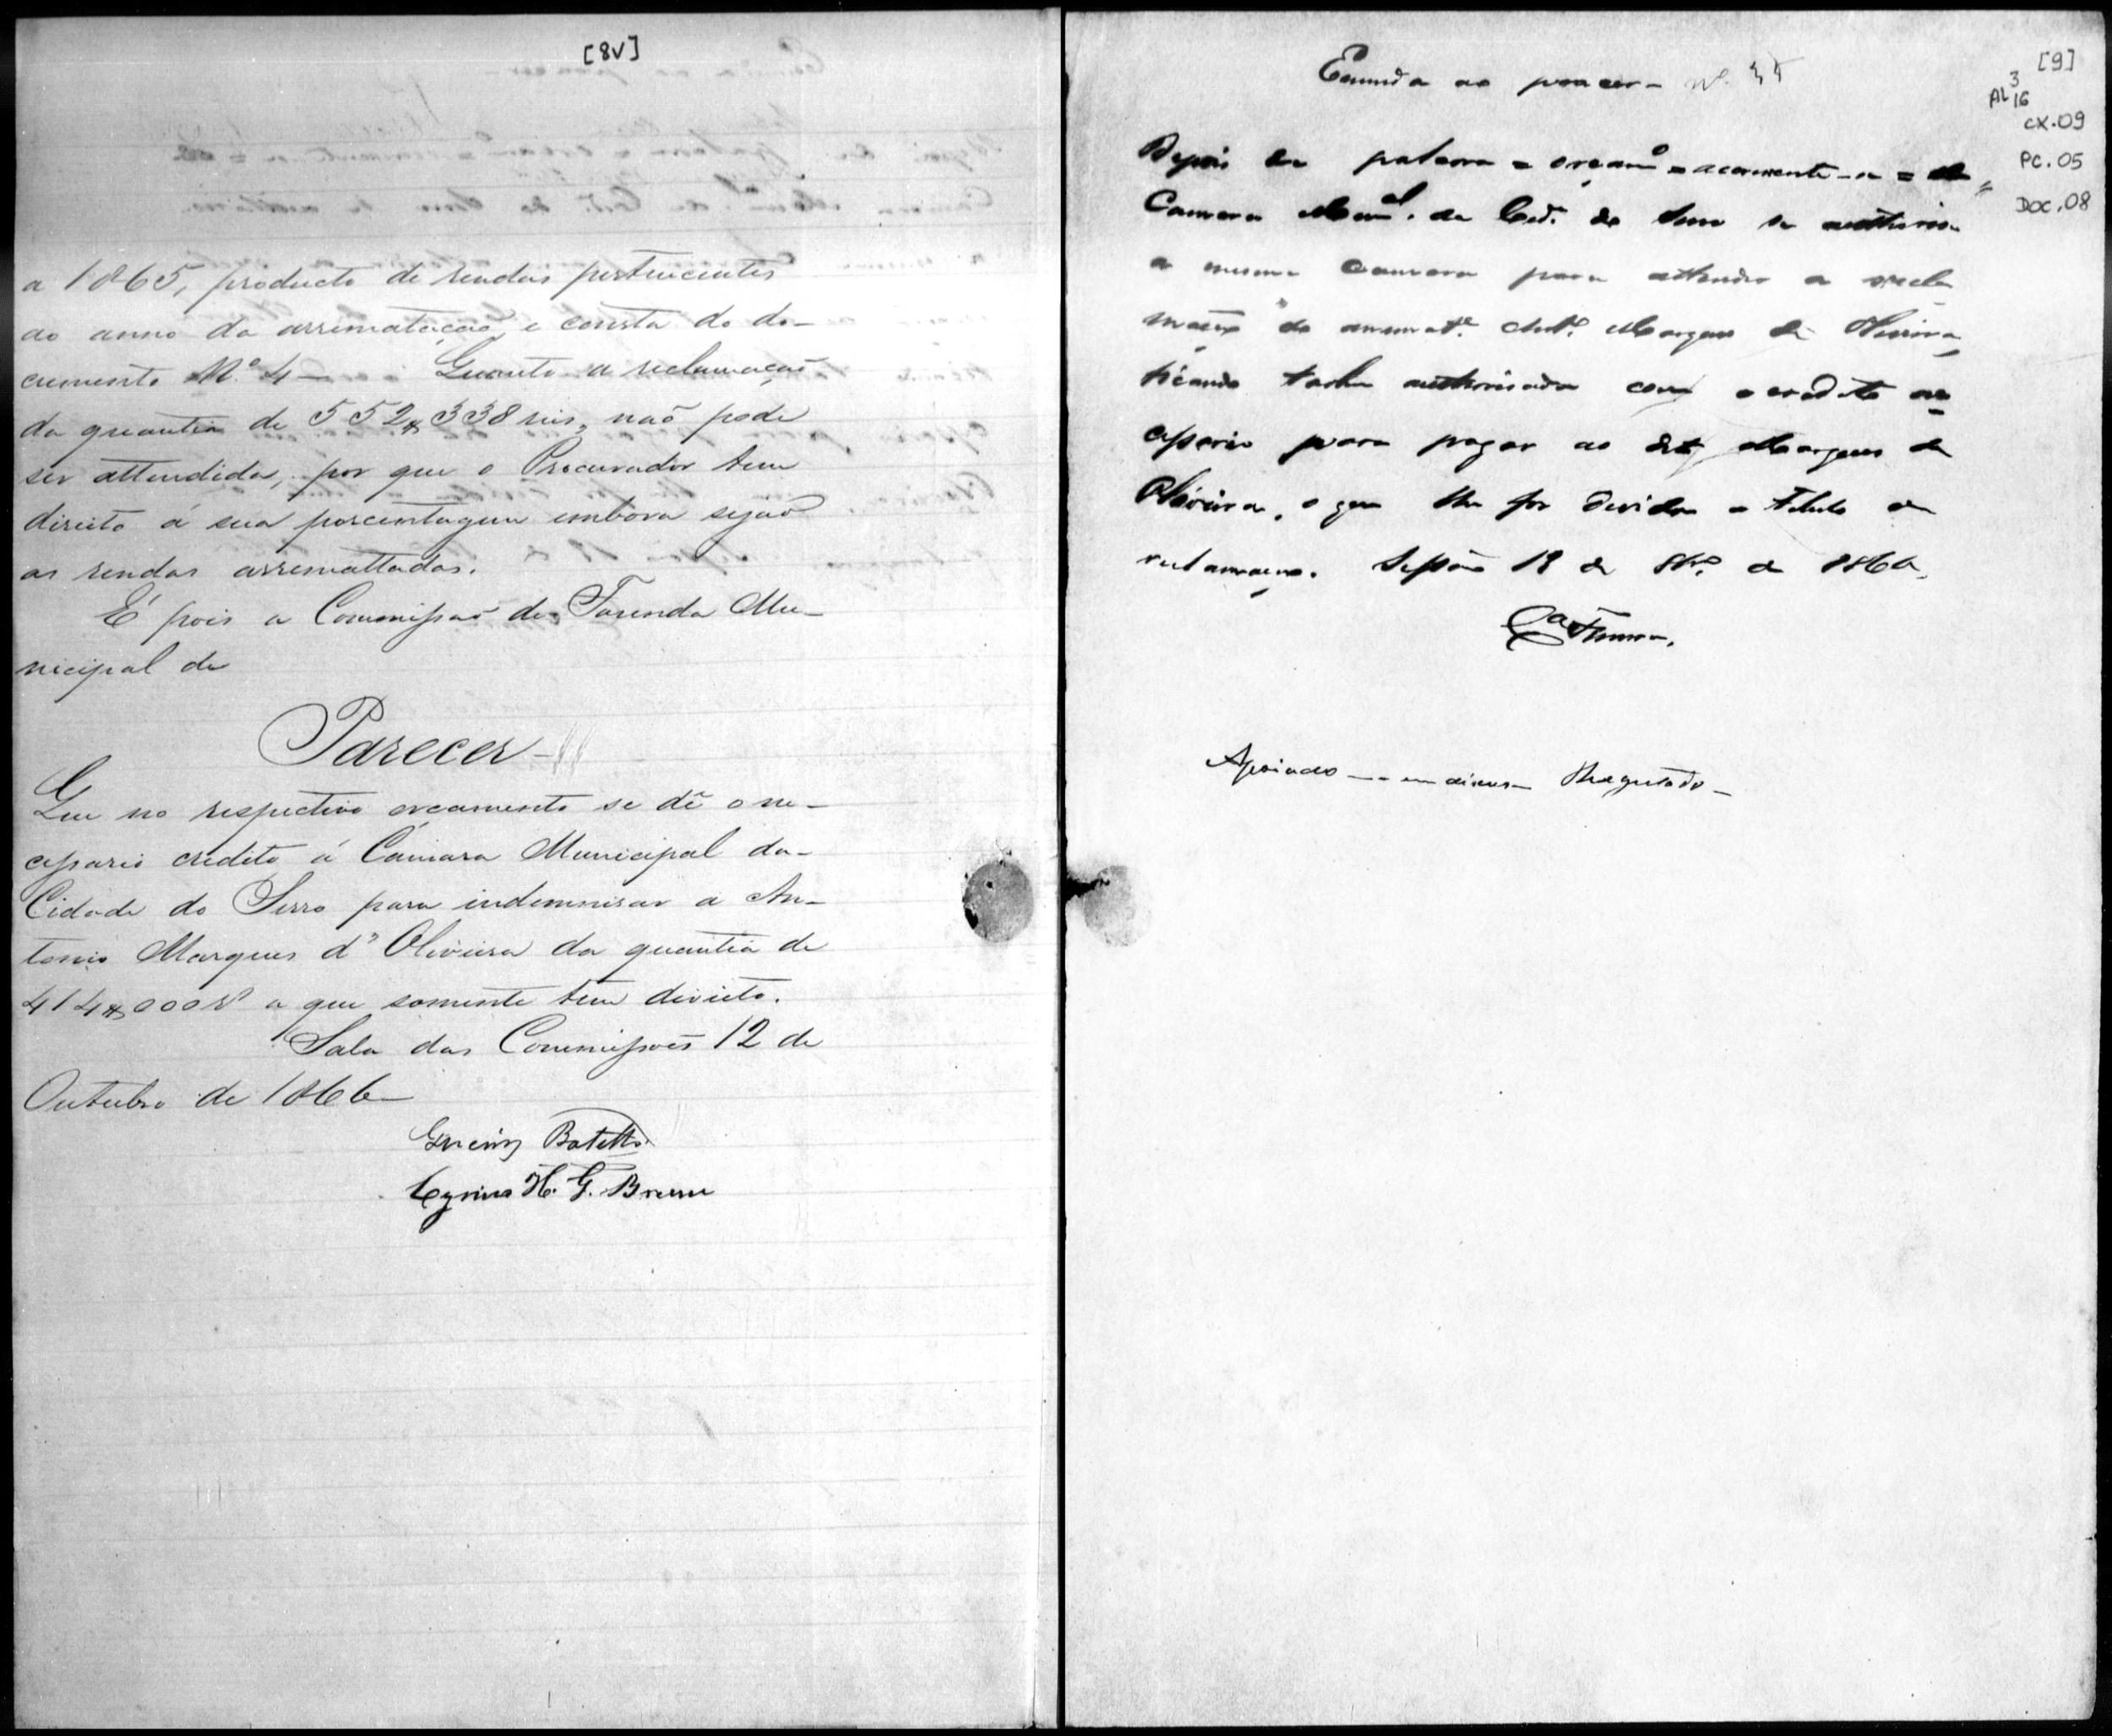 [8V]
a 1865, producto de rendas pertencentes
ao anno da arrematação, e consta do do-
cumento N.º 4 — Quanto a reclamação
da quantia de 552$338 reis, naõ pode
ser attendida, por que o Procurador tem
direito á sua porcentagem embora sejaõ
as rendas arremattadas.
É pois a Commissaõ de Fazenda Mu-
nicipal de
Parecer
Que no respectivo orçamento se dê o ne-
cessario credito á Camara Municipal da
Cidade do Serro para indemnisar a An-
tonio Marques d'Oliveira da quantia de
414$000 rs a que somente tem direito.
Sala das Commissões 12 de
Outubro de 1866
Botelho
Cyrino H. G.
[9]
AL 3
16
CX.09
PC.05
DOC.08
Emenda ao parecer Nº
Depois da palavra = orçamº = accrescente-se = a
Camara Mun.al da Cid.e do Serro se authorisa
a mesma Camara para attender a recla
mação do arremat.e Ant.º Marques de Oliveira
ficando authorisada com o credito ne
cessario para pagar ao Marques de
Oliveira, o que lhe for devido a titulo de
reclamação. Sessão 12 de 8br.º de 1866.
Apoiado